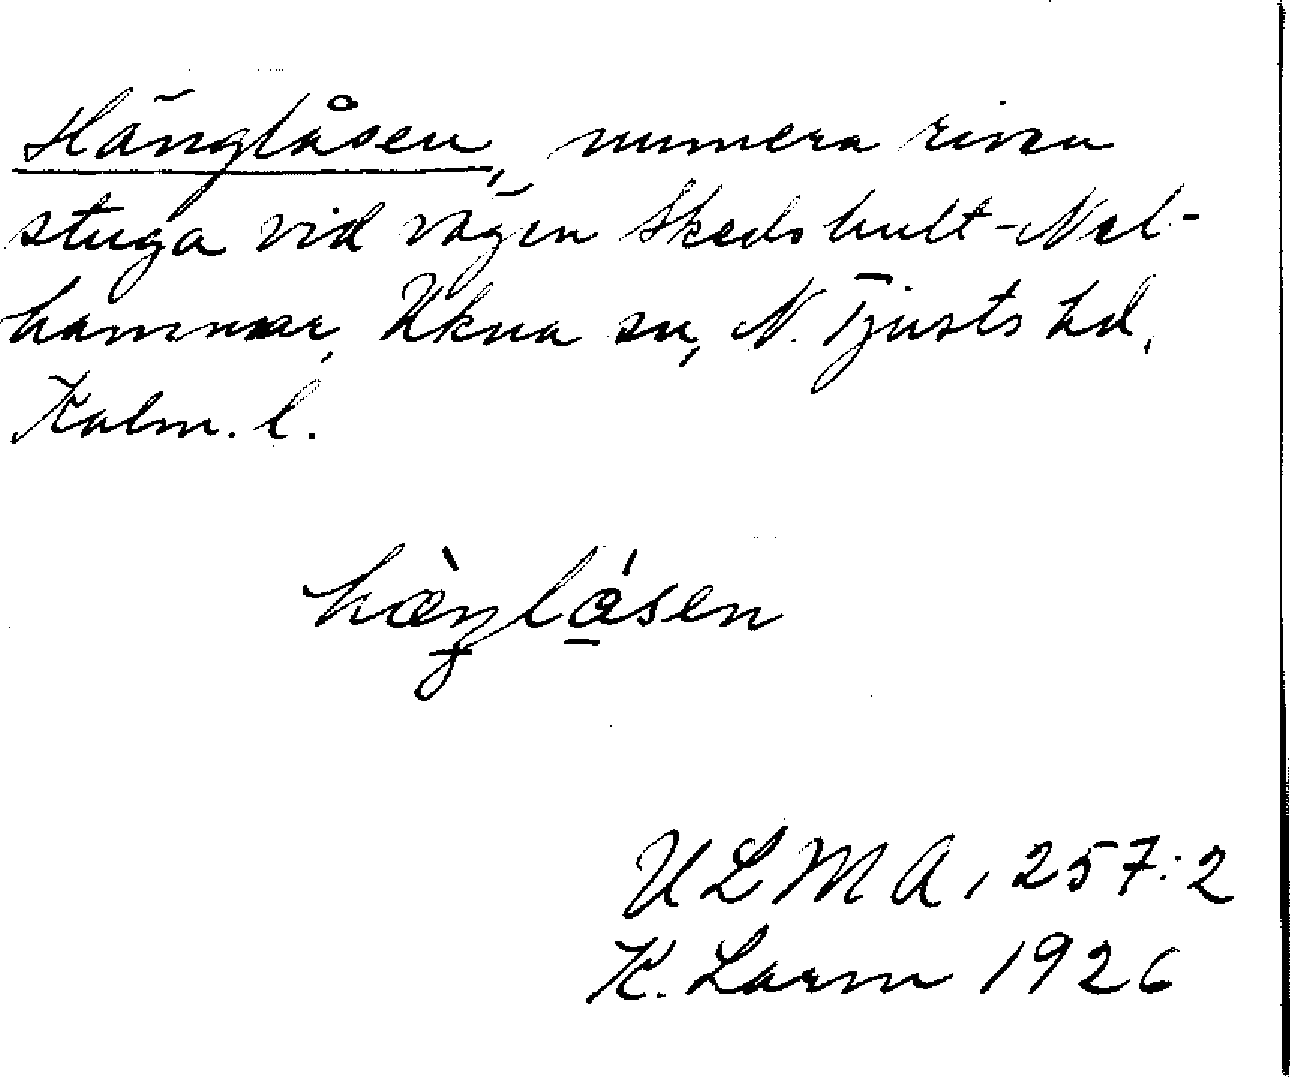 Hänglåsen, numera riven
stuga vid vägen Skedshult-Nel-
hammar, Ukna sn, N. Tjusts hd,
Kalm. l.
hæ̀ŋlåsen
ULMA, 257:2
K. Larm 1926